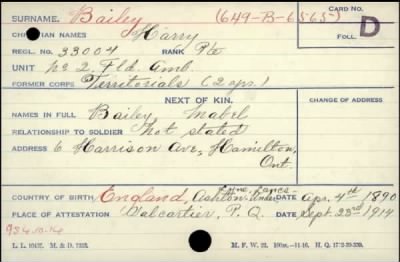 SURNAME. Bailey (649-B-6565) CARD NO.
CHRISTIAN NAMES Harry FOLL. D
REGL. NO. 33004 RANK Pte
UNIT No 2. Fld. Amb.
FORMER CORPS Territorials (2 yrs.)
NEXT OF KIN. CHANGE OF ADDRESS
NAMES IN FULL Bailey Mabel
RELATIONSHIP TO SOLDIER Not stated
ADDRESS 6 Harrison Ave, Hamilton,
Ont.
Lyne, Lancs-
COUNTRY OF BIRTH England, Ashton-Under- DATE Apr. 4th 1890
PLACE OF ATTESTATION Valcartier, P.Q. DATE Sept. 23rd 1914
L. L. M. & D. M. F. W. 22. H. Q.